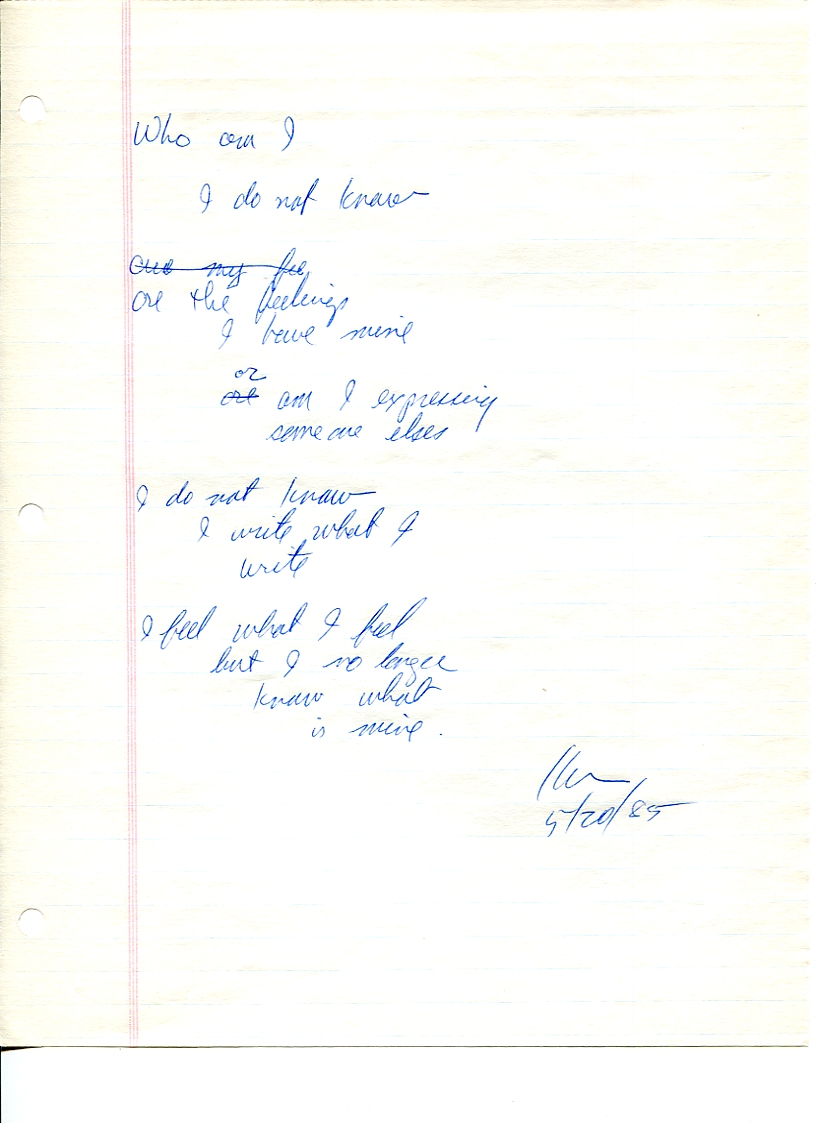 Who am I
I do not know
are my fee
are the feelings
I have mine
or
are am I expressing
someone elses
I do not know
I write what I
write
I feel what I feel
but I no longer
know what
is mine.
5/20/85